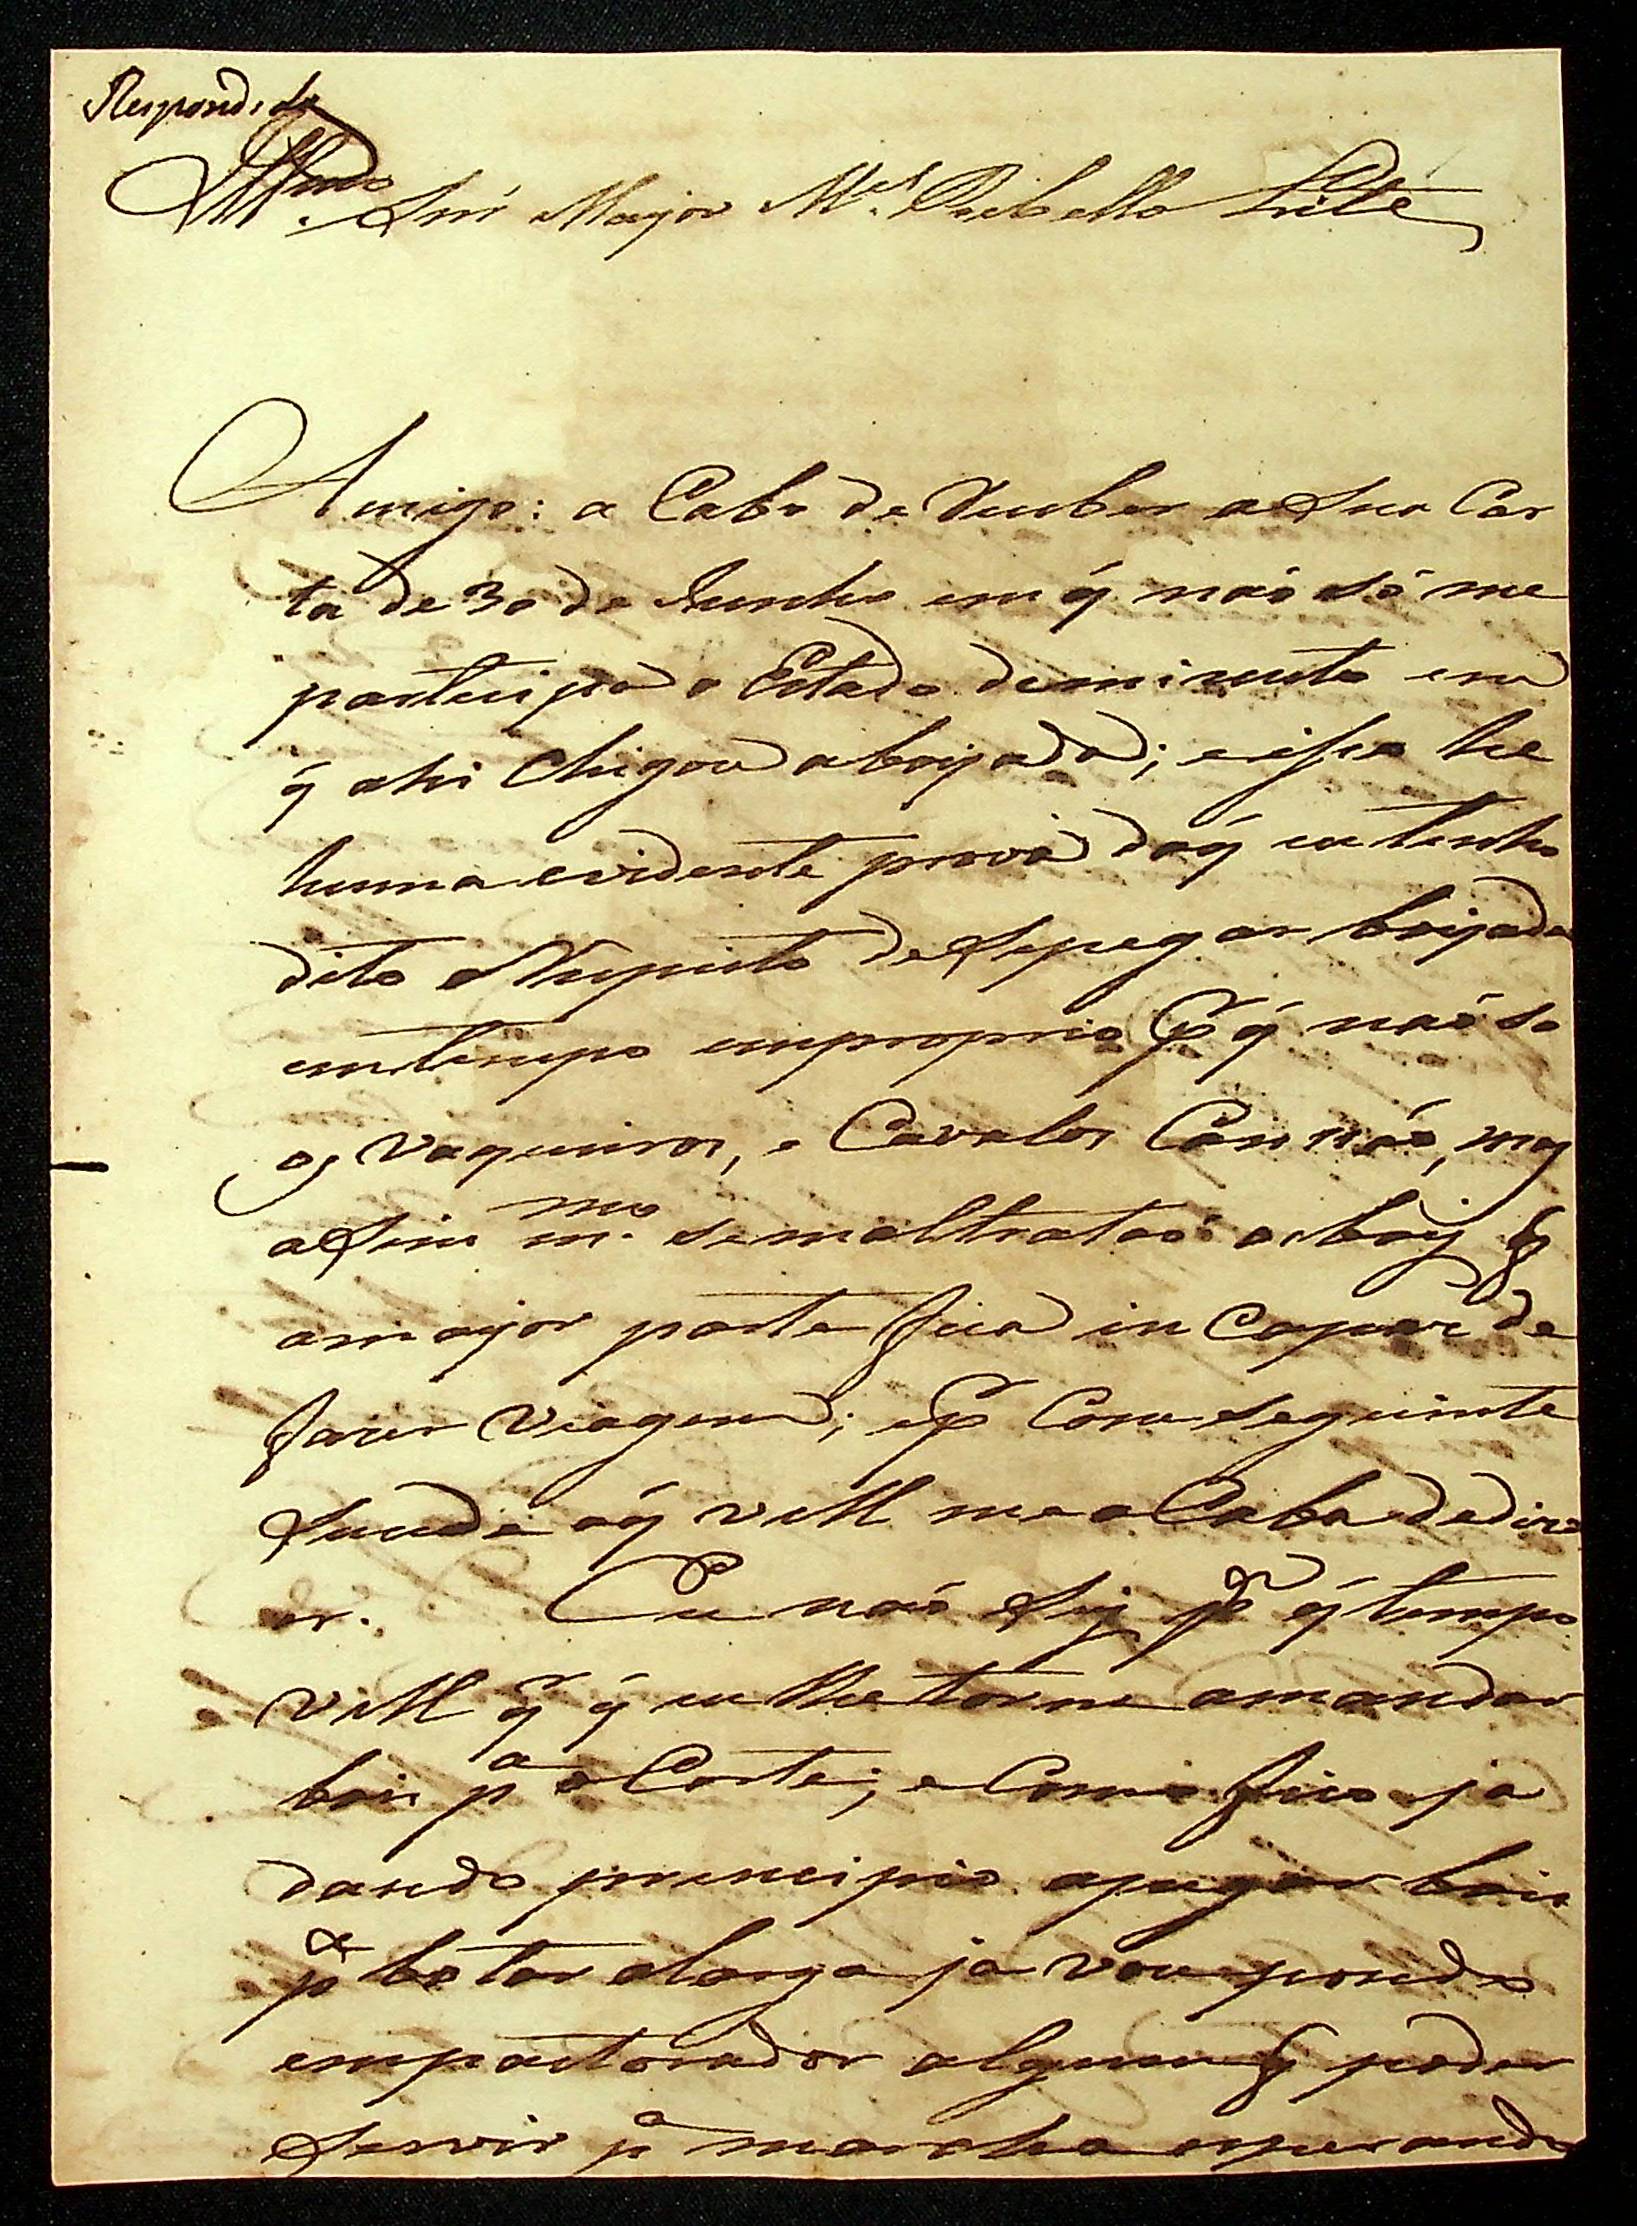 Respondida
Illmo. Snr Major Mel. Rebello Leite
Amigo: a Cabo de Receber a Sua Car
ta de 30 de Junho em q̃ naõ só me
partecipa o Estado deminuto em
q̃ ahi Chegou a boyada; e isso he
huma evidente prova do q̃ eu tenho
dito a Respeito de Se pegar boyada
em tempo improprio P q̃ naõ so
os vaqueiros, e Cavalos Cansaõ, mas
aSim mmo. se maltrataõ os boys q̃
a mayor parte fica in Capaz de
fazer viagem; e P Com seguinte
Sucede o q̃ VM me a Caba de dize
er. Eu naõ Sey pa q̃ tempo
VM q̃r q̃ eu lhe torne a mandar
bois pa o Corte; e Como fico ja
dando principio a pegar bois
pa botar a larga ja vou pondo
em pastorador alguns q̃ poder
Servir pa marcha esperando